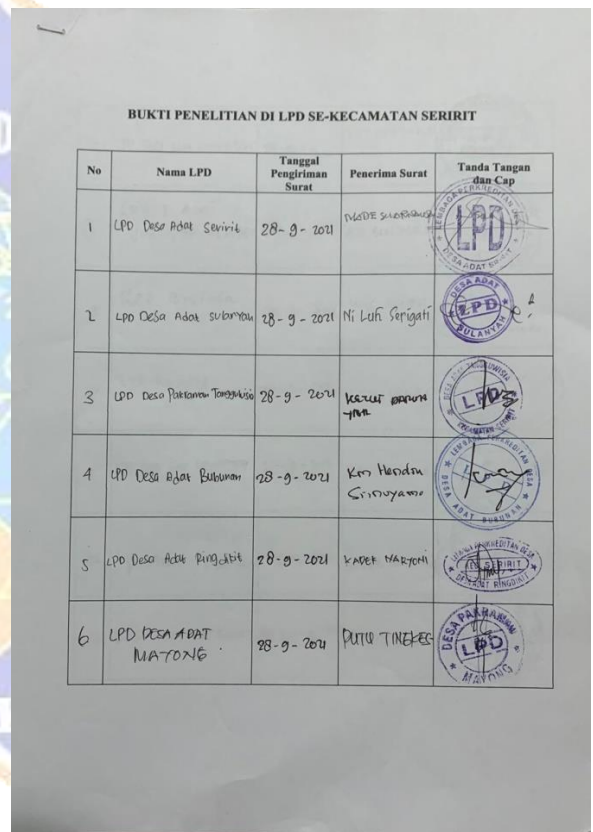 BUKTI PENELITIAN DI LPD SE-KECAMATAN SERIRIT
No
Nama LPD
Tanggal
Pengiriman
Surat
Penerima Surat
Tanda Tangan
dan Cap
1
LPD Desa Adat Seririt
28-9-2021
MADE
LEMBAGA PERKREDITAN
LPD
DESA ADAT
2
LPD Desa Adat Sulanyah
28-9-2021
Ni Luh Serigati
DESA ADAT
LPD
SULANYAH
3
LPD Desa Pakraman Tangguwisia
28-9-2021
KETUT
LPD
KECAMATAN SERIRIT
4
LPD Desa Adat Bubunan
28-9-2021
Km Hendra
LEMBAGA PERKREDITAN DESA
DESA ADAT BUBUNAN
5
LPD Desa Adat Ringdikit
28-9-2021
KADEK MARYONI
LEMBAGA PERKREDITAN DESA
SERIRIT
DESA ADAT RINGDIKIT
6
LPD DESA ADAT
MAYONG
28-9-2021
PUTU TINGKES
DESA PAKRAMAN
LPD
MAYONG